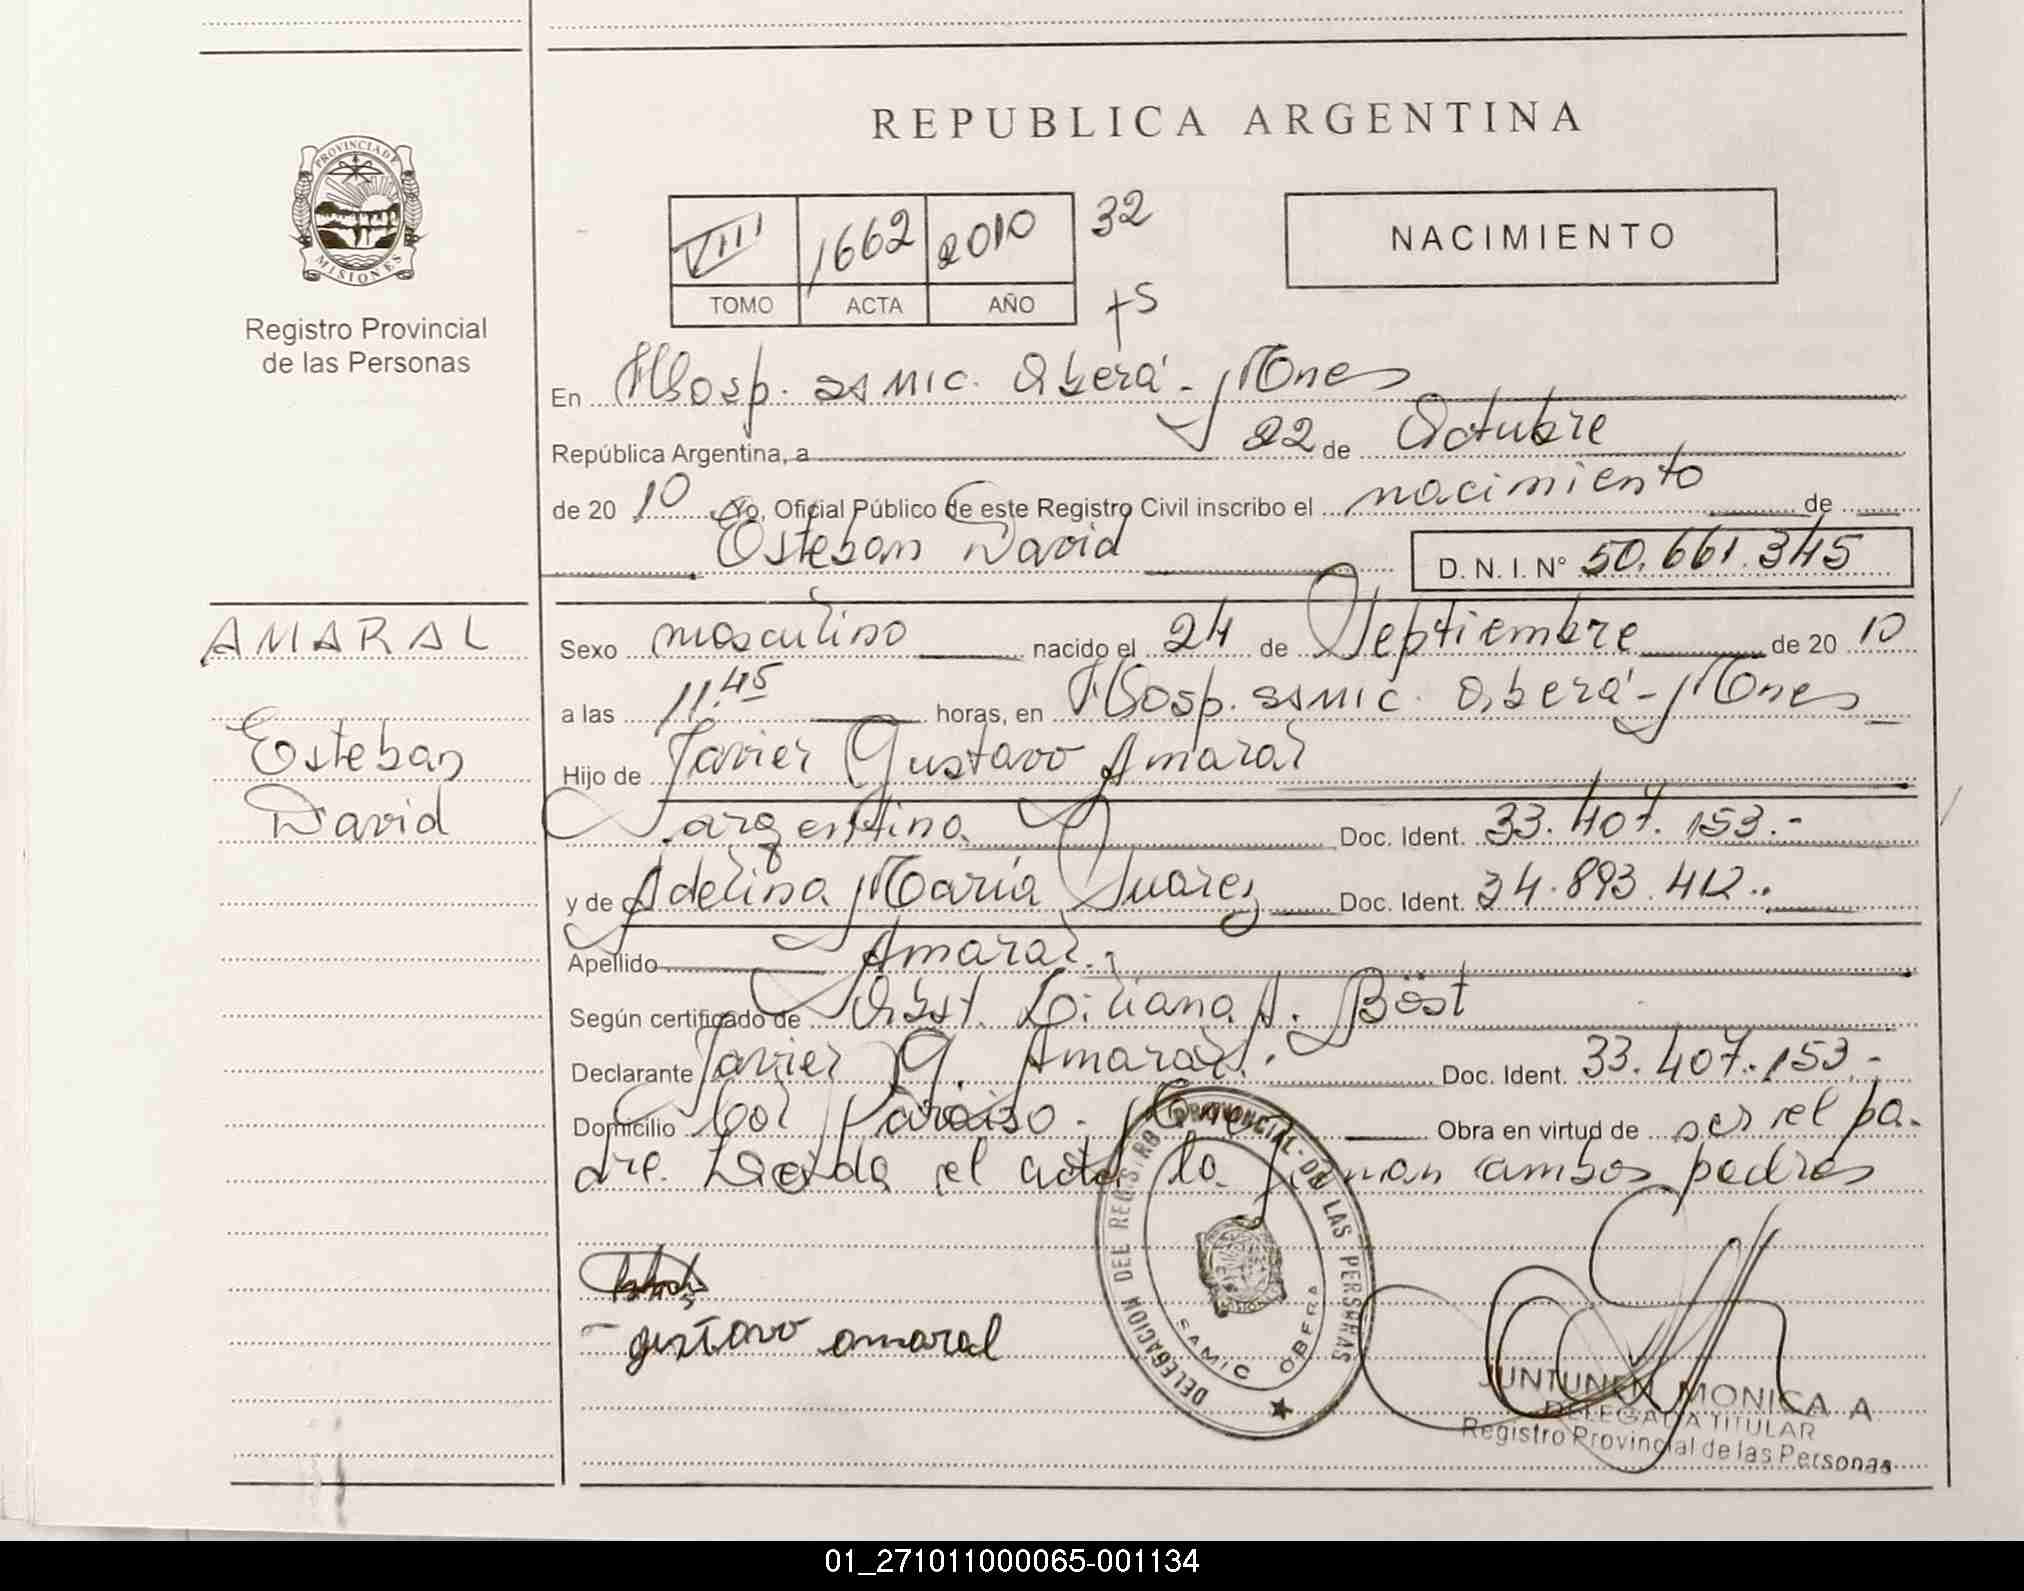 REPUBLICA ARGENTINA
PROVINCIA DE
MISIONES
Registro Provincial
de las Personas
VIII 1662 2010 32
TOMO ACTA AÑO
NACIMIENTO
En Hosp. SAMIC. Oberá - Mnes
República Argentina, a 22 de Octubre
de 20 10 Yo, Oficial Público de este Registro Civil inscribo el nacimiento de
Esteban David D. N. I. N° 50.661.345
AMARAL
Esteban
David
Sexo masculino nacido el 24 de Septiembre de 20 10
a las 11.45 horas, en Hosp. SAMIC. Oberá - Mnes
Hijo de Javier Gustavo Amaral
argentino Doc. Ident. 33.407.153.-
y de Adelina María Suarez Doc. Ident. 34.893.412.-
Apellido Amaral.-
Según certificado de Obst. Liliana A. Böst
Declarante Javier G. Amaral. Doc. Ident. 33.407.153.-
Domicilio Col Paraiso - Obra en virtud de ser el pa-
dre. Leída el acta la firman ambos padres
gustavo amaral
DELEGACION DEL REGISTRO PROVINCIAL DE LAS PERSONAS
SAMIC OBERA
JUNTUNEN MONICA A
DELEGADA TITULAR
Registro Provincial de las Personas
01_271011000065-001134